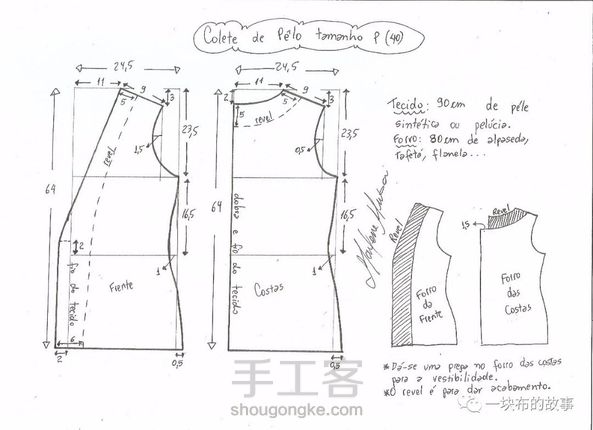 Colete de Pêlo tamanho P (40)
24,5
24,5
11
9
3
5
11
9
3
2
5
5
revel
revel
1,5
0,5
23,5
23,5
64
64
16,5
16,5
2
1
1
fio do tecido
Frente
dobra e fio do tecido
Costas
6
2
0,5
0,5
Tecido: 90cm de pele
sintética ou pelúcia.
Forro: 80cm de alpaseda,
tafetá, flanela...
Marlene Mukai
Revel
Forro
da
Frente
Revel
1,5
Forro
das
Costas
*Dá-se uma prega no forro das costas
para a vestibilidade.
*O revel é para dar acabamento.
手工客
shougongke.com
一块布的故事